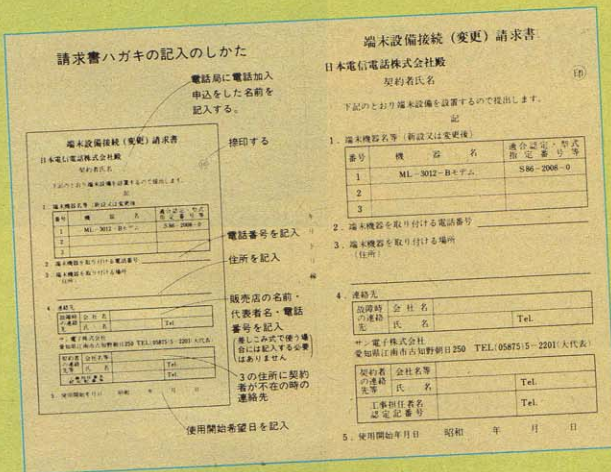 請求書ハガキの記入のしかた
電話局に電話加入
申込をした名前を
記入する。
捺印する
電話番号を記入
住所を記入
販売店の名前・
代表者名・電話
番号を記入
差しこみ式で使う場
合には記入する必要
はありません
3の住所に契約
者が不在の時の
連絡先
使用開始希望日を記入
端末設備接続(変更)請求書
日本電信電話株式会社殿
契約者氏名
印
下記のとおり端末設備を設置するので提出します。
記
1. 端末機器名等(新設又は変更後)
番号 機器名 適合認定・型式指定番号等
1 ML-3012-Bモデム S86-2006-0
2
3
2. 端末機器を取り付ける電話番号
3. 端末機器を取り付ける場所
(住所)
4. 連絡先
故障時の連絡先 会社名
氏名 Tel.
サン電子株式会社
愛知県江南市古知野朝日250 TEL(05875)5-2201(大代表)
契約者の連絡先等 会社名等
氏名 Tel.
5. 使用開始年月日 昭和 年 月 日
端末設備接続(変更)請求書
日本電信電話株式会社殿
契約者氏名
印
下記のとおり端末設備を設置するので提出します。
記
1. 端末機器名等(新設又は変更後)
番号 機器名 適合認定・型式指定番号等
1 ML-3012-Bモデム S86-2006-0
2
3
2. 端末機器を取り付ける電話番号
3. 端末機器を取り付ける場所
(住所)
4. 連絡先
故障時の連絡先 会社名
氏名 Tel.
サン電子株式会社
愛知県江南市古知野朝日250 TEL(05875)5-2201(大代表)
契約者の連絡先等 会社名等
氏名 Tel.
工事担任者名 Tel.
認定記番号
5. 使用開始年月日 昭和 年 月 日